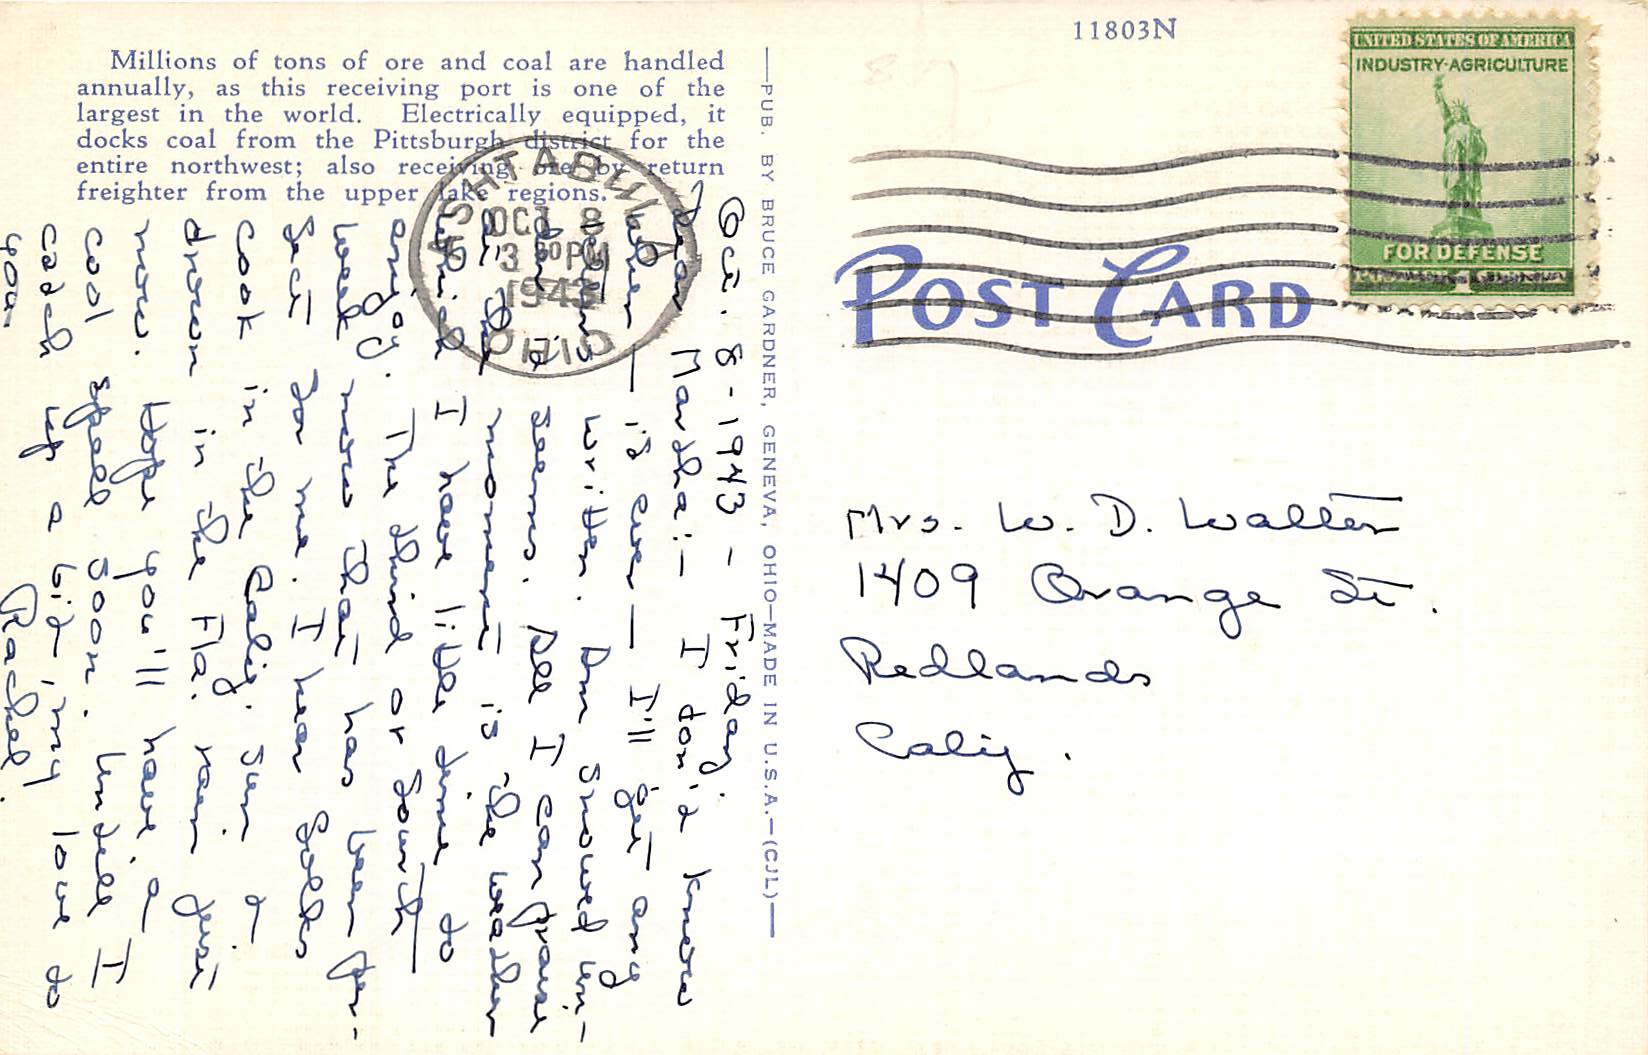 11803N
UNITED STATES OF AMERICA
INDUSTRY-AGRICULTURE
FOR DEFENSE
Millions of tons of ore and coal are handled
annually, as this receiving port is one of the
largest in the world. Electrically equipped, it
docks coal from the Pittsburgh district for the
entire northwest; also receiving ore by return
freighter from the upper lake regions.
ASHTABULA
OCT 8
3 30 PM
1943
OHIO
PUB. BY BRUCE GARDNER, GENEVA, OHIO—MADE IN U.S.A.—(CJL)
POST CARD
Oct. 8-1943 - Friday.
Dear Martha:- I don't know
when — if ever — I'll get any
letters written. Am snowed un-
der it seems. All I can praise
at the moment is the weather
which I have little time to
enjoy. The third or fourth
week now that has been per-
fect for me. I hear folks
cook in the Calif. sun &
drown in the Fla. rain just
now. Hope you'll have a
cool spell soon. Until I
catch up a bit, my love to
you. Rachel.
Mrs. W. D. Walter
1409 Orange St.
Redlands
Calif.